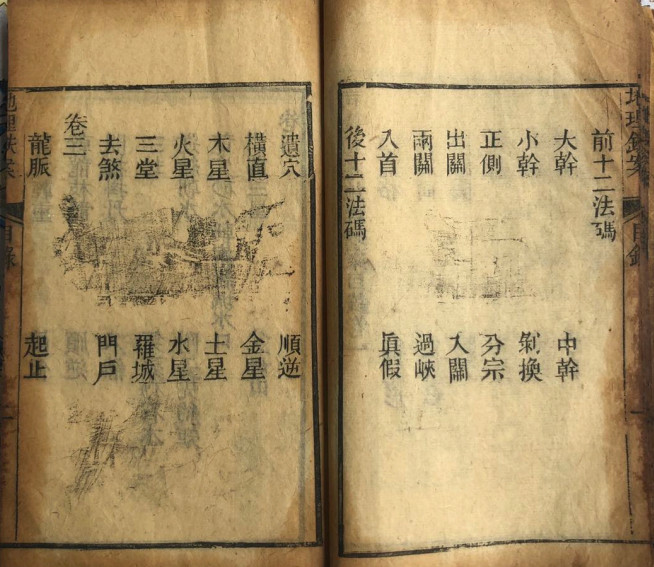 地理
目錄
前十二法碼
大幹 中幹
小幹 剝換
正側 分宗
出關 入關
兩關 過峽
入首 眞假
後十二法碼
遺穴 順逆
橫直 金星
木星 土星
火星 水星
三堂 羅城
去煞 門戶
卷三
龍脈 起止